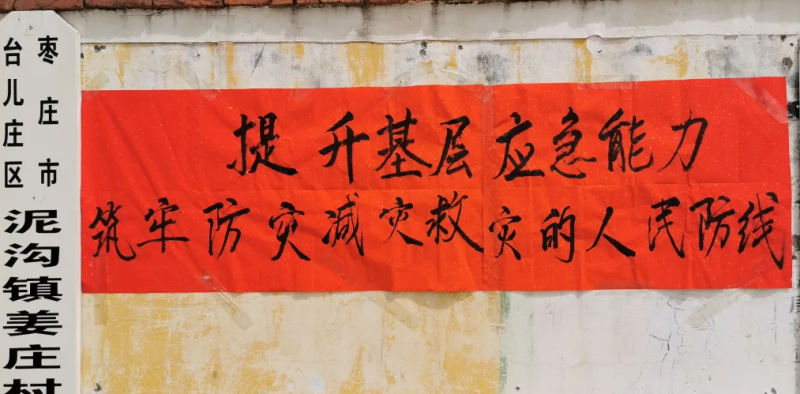 枣庄市
台儿庄区
泥沟镇姜庄村
提升基层应急能力
筑牢防灾减灾救灾的人民防线